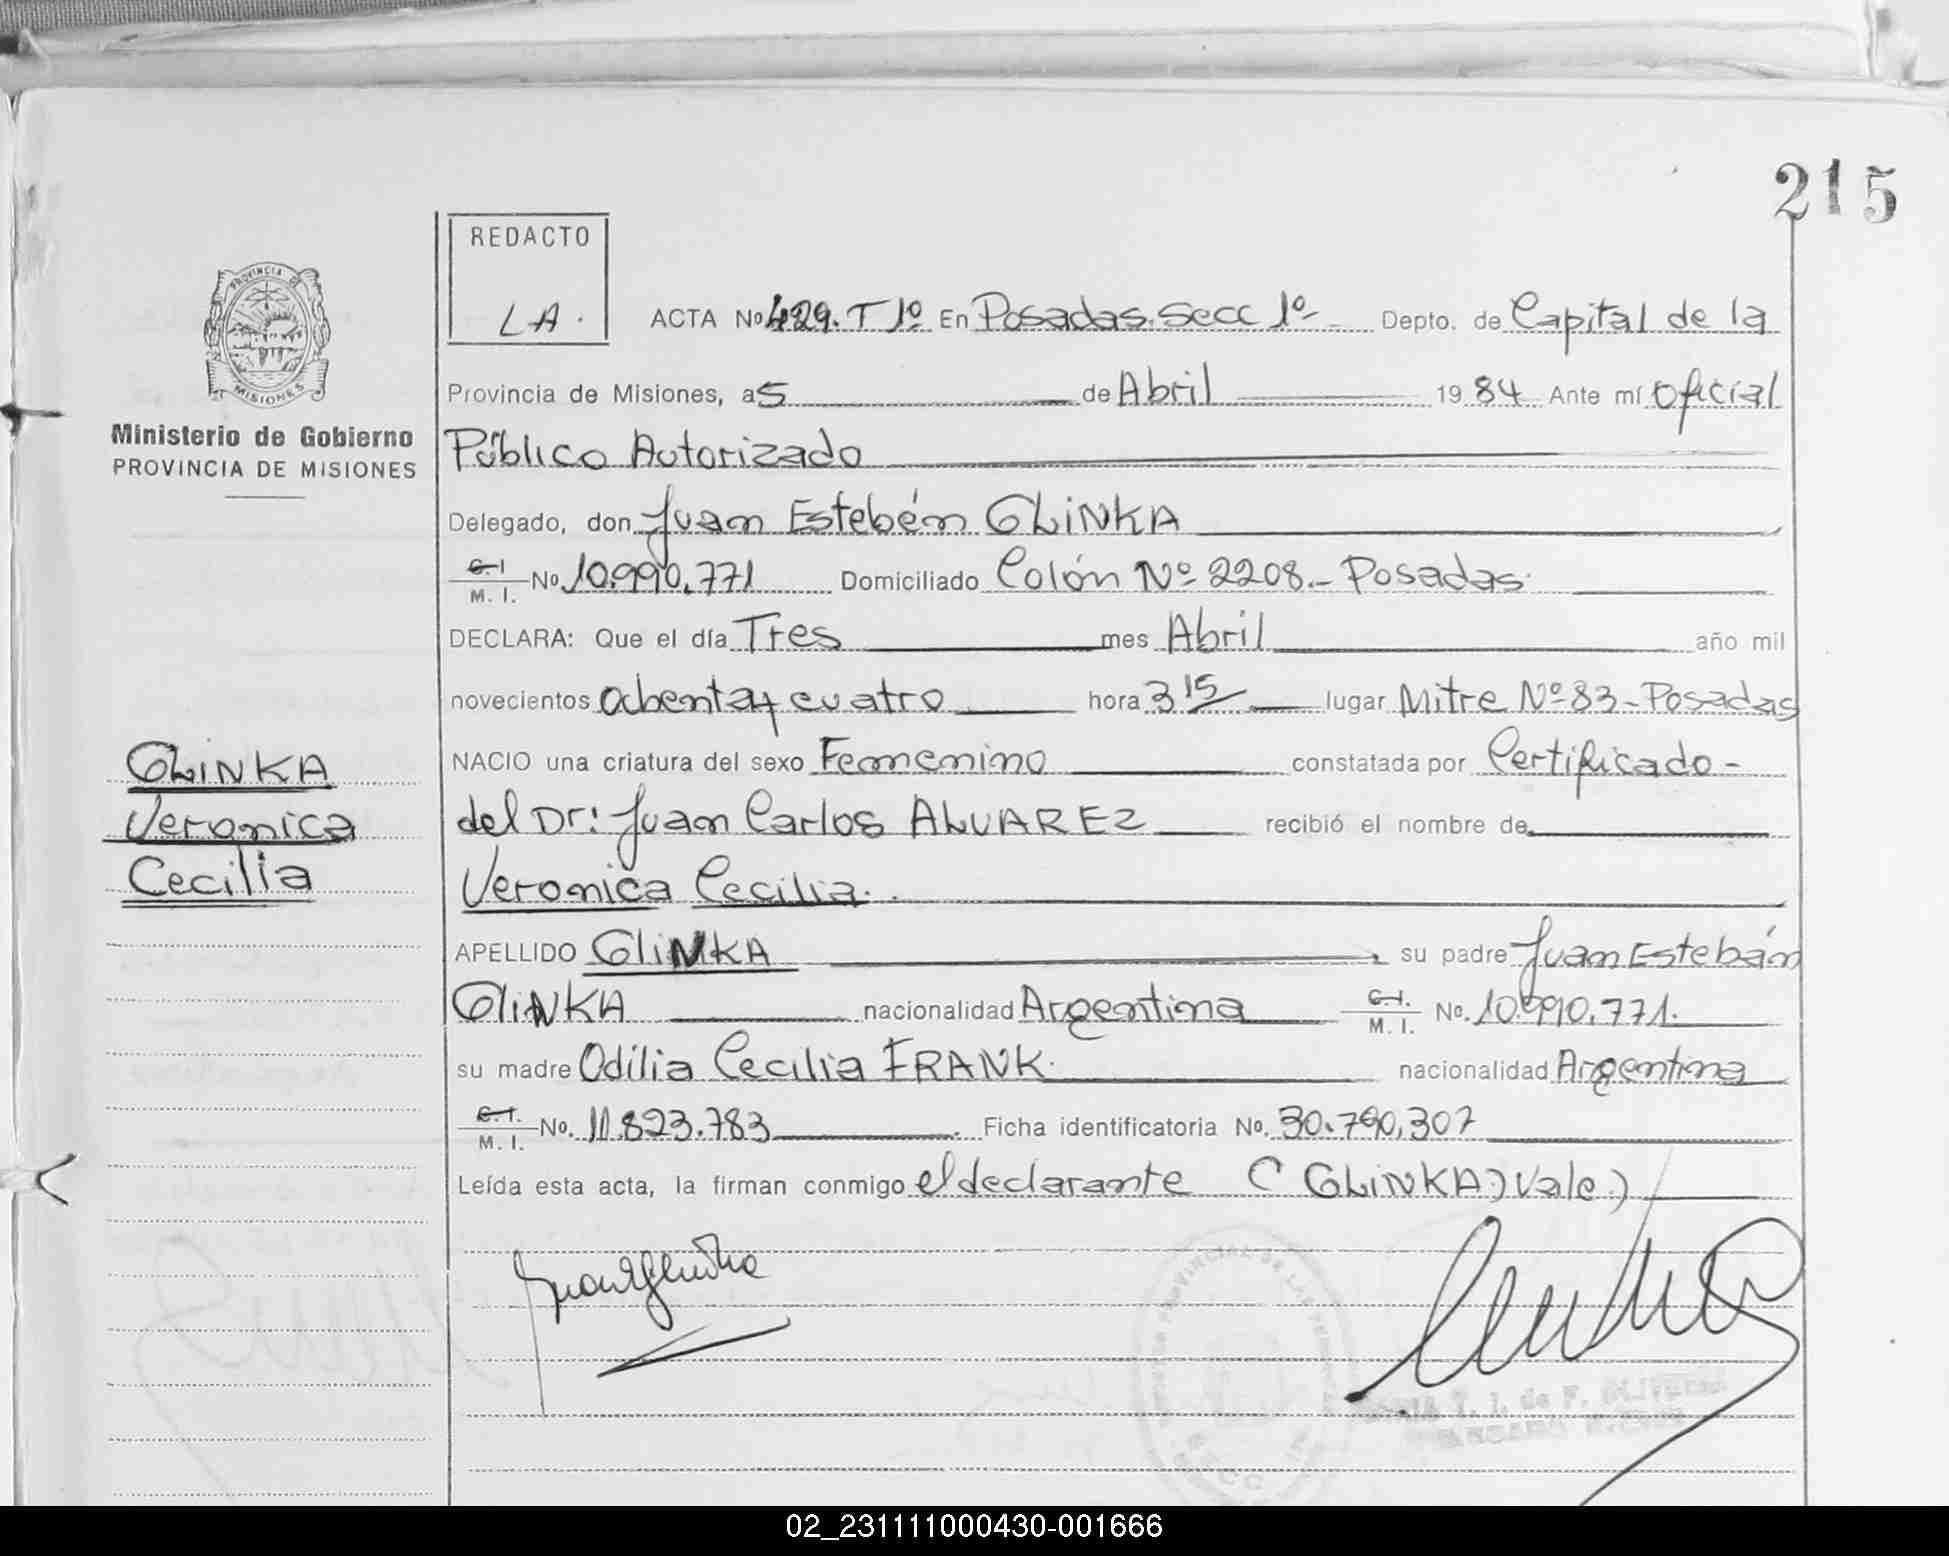 215
REDACTO
LA.
ACTA No 429. T 1º En Posadas. Secc 1º Depto. de Capital de la
Provincia de Misiones, a 5 de Abril 19 84 Ante mí Oficial
Público Autorizado
PROVINCIA DE
MISIONES
Ministerio de Gobierno
PROVINCIA DE MISIONES
Delegado, don Juan Estebán GLINKA
C. I.
M. I. No. 10.990.771 Domiciliado Colón Nº 2208.- Posadas
DECLARA: Que el día Tres mes Abril año mil
novecientos ochenta y cuatro hora 3 15 lugar Mitre Nº 83 - Posadas
NACIO una criatura del sexo Femenino constatada por Certificado -
del Dr: Juan Carlos ALVAREZ recibió el nombre de
Veronica Cecilia.
GLINKA
Veronica
Cecilia
APELLIDO GLINKA su padre Juan Estebán
GLINKA nacionalidad Argentina C. I. M. I. No. 10.990.771.
su madre Odilia Cecilia FRANK. nacionalidad Argentina
C. I. M. I. No. 11.823.783 Ficha identificatoria No. 30.790,307
Leída esta acta, la firman conmigo el declarante ( GLINKA) Vale.)
02_231111000430-001666